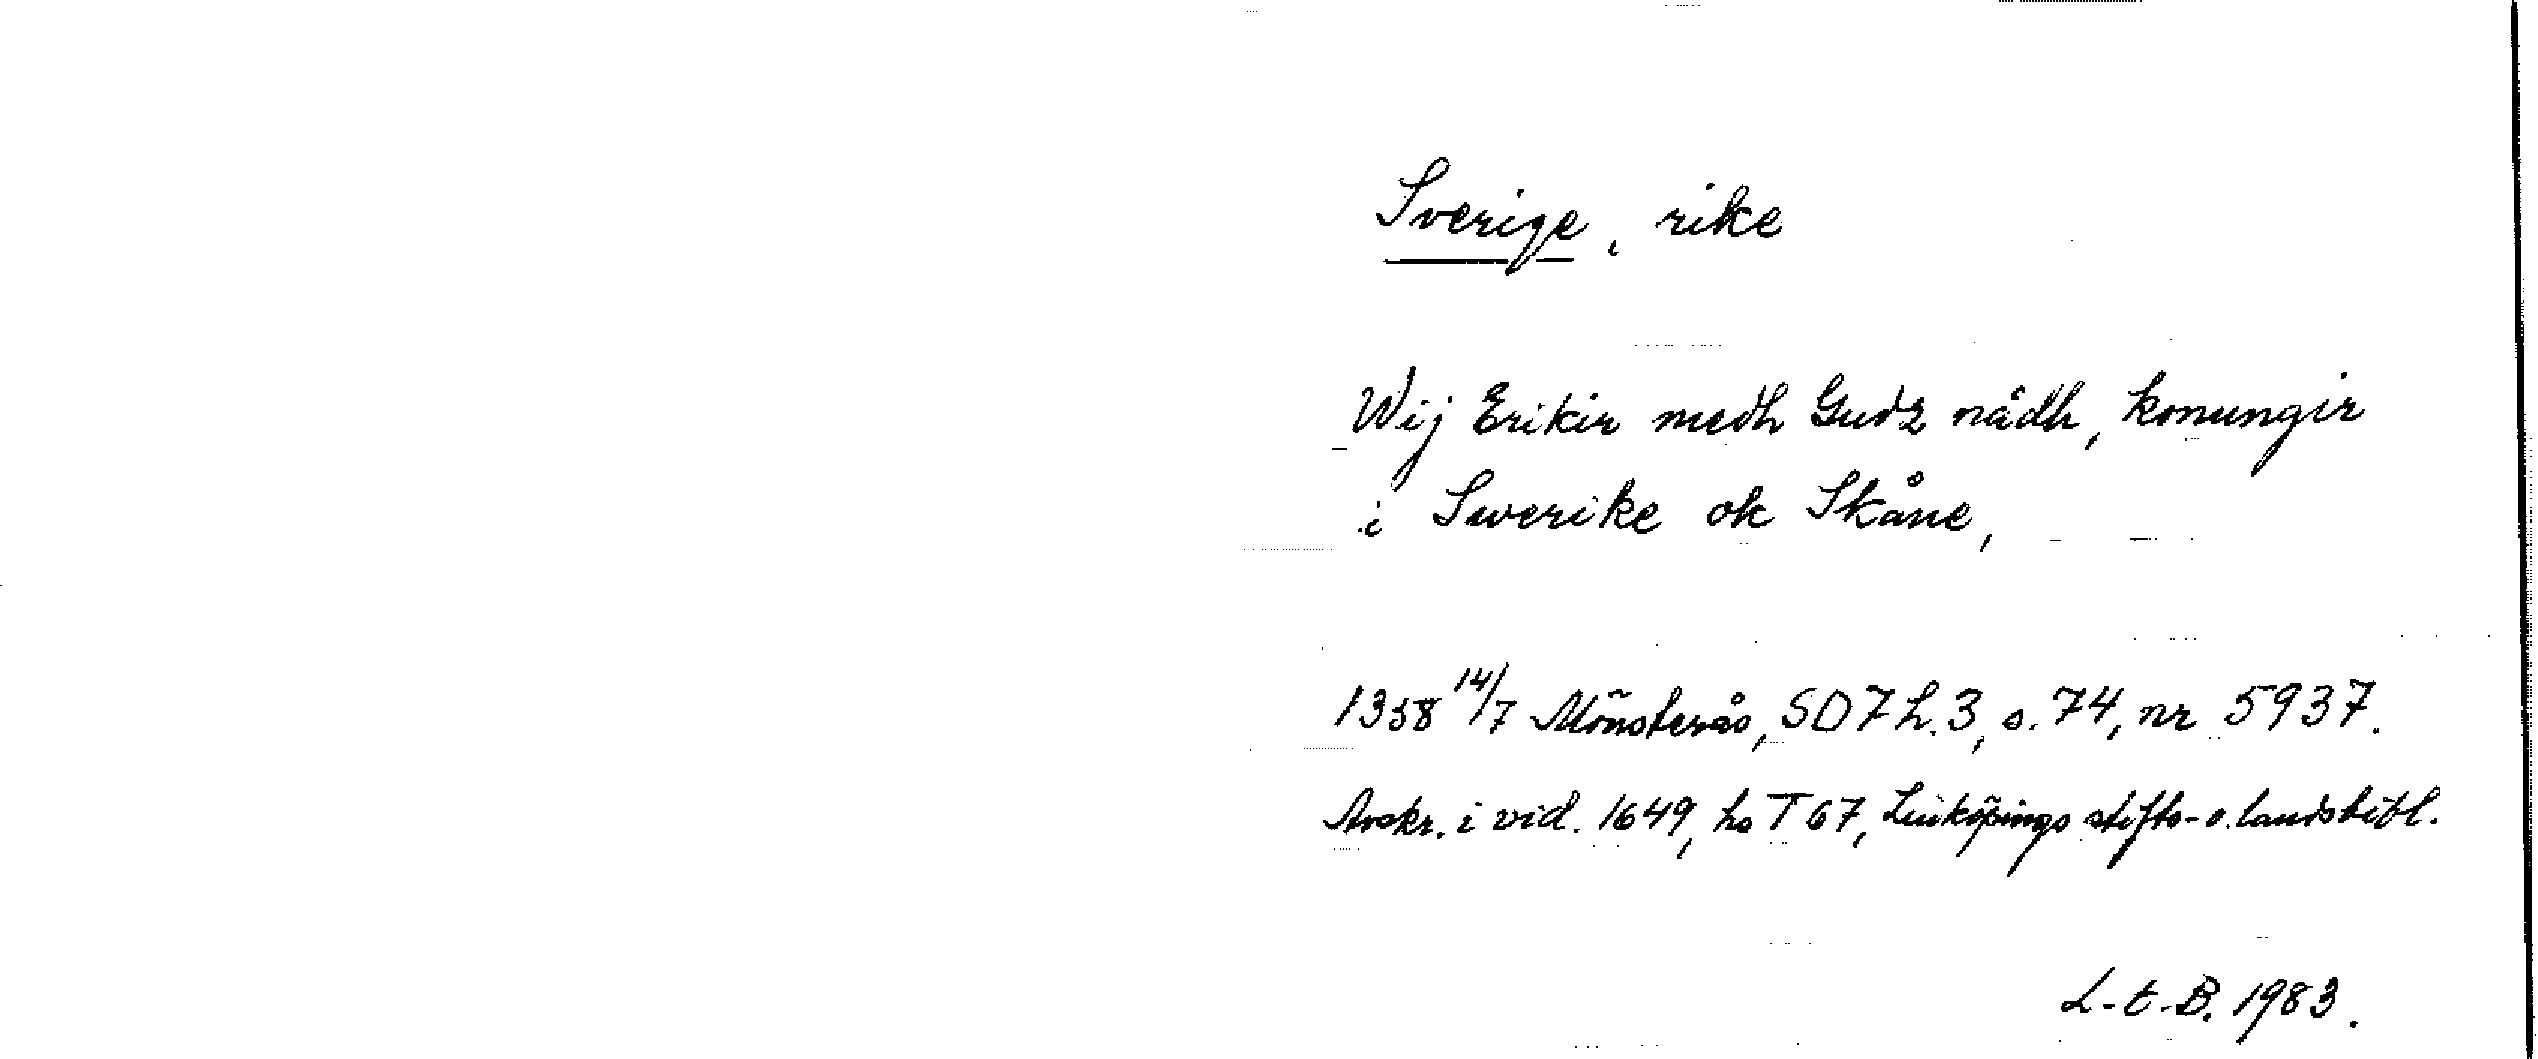 Sverige, rike
Wij Erikir medh Gudz nådh, konungir
i Swerike ok Skåne,
1358 14/7 Mönsterås, SD 7 h. 3, s. 74, nr 5937.
Avskr. i vid. 1649, hs T 67, Linköpings stifts- o. landsbibl.
L-E. B. 1983.